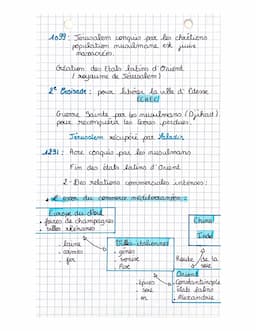 1099 : Jérusalem conquis par les chrétiens
population musulmane et juive
massacrées.
Création des Etats latins d'Orient
( royaume de Jérusalem)
2e Croisade : pour libérer la ville d'Edesse
ECHEC
Guerre Sainte par les musulmans (Djihad)
pour reconquérir les terres perdues.
Jérusalem récupéré par Saladin
1291 : Acre conquis par les musulmans
Fin des états latins d'Orient
2 - Des relations commerciales intenses :
L'essor du commerce méditerranéen :
Europe du Nord
• foires de champagnes
• villes rhénanes
Chine
Inde
• laine
• armes
• fer
Villes italiennes
• gênes
• venise
• Pise
Route de la
soie
• épices
• soie
• or
Orient
• Constantinople
• états latins
• Alexandrie